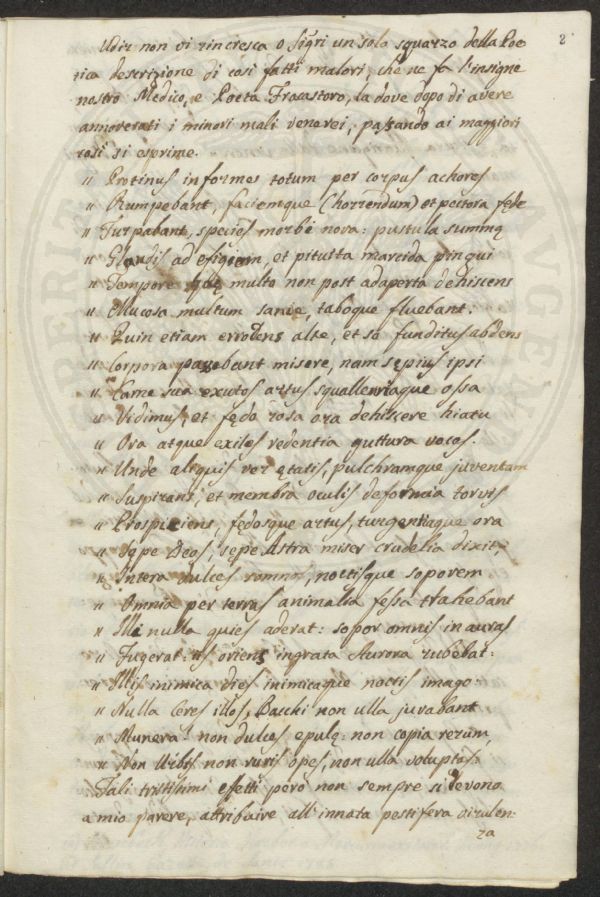 2
Udir non vi rincresca o Sigri un solo squarzo della Poe
tica descrizione di così fatti malori, che ne fa l'insigne
nostro Medico, e Poeta Fracastoro, la dove dopo di avere
annoverati i minori mali venerei, passando ai maggiori
così si esprime.
" Protinus informes totum per corpus achores
" Rumpebant, faciemque (horrendum) et pectora fęde
" Turpabant, species morbi nova: pustula summę
" Glandis ad efigiem, et pituita marcida pingui
" Tempore quę multo non post adaperta dehiscens
" Mucosa multum sanie taboque fluebant:
" Quin etiam errodens alte, et se funditus abdens
" Corpora pascebant misere, nam sępius ipsi
" Carne sua exutos artus squallentiaque ossa
" Vidimus, et fędo rosa ora dehiscere hiatu
" Ora atque exiles redentia guttura voces.
" Unde aliquis ver ętatis, pulchramque juventam
" Suspirans, et membra oculis deformia torvis
" Prospiciens, fędosque artus, turgentiaque ora
" Sępe Deos, sępe Astra miser crudelia dixit,
" Intera dulces somnos, noctisque soporem
" Omnia per terras animalia fessa trahebant
" Illi nulla quies aderat: sopor omnis in auras
" Fugerat: iis oriens ingrata Aurora rubebat:
" Illis inimica dies inimicaque noctis imago:
" Nulla Ceres illos, Bacchi non ulla juvabant
" Munera: non dulces epulę: non copia rerum,
" Non Urbis non ruris opes, non ulla voluptas:
Tali tristissimi efetti però non sempre si devono
a mio parere, attribuire all'innata pestifera virulen:
za